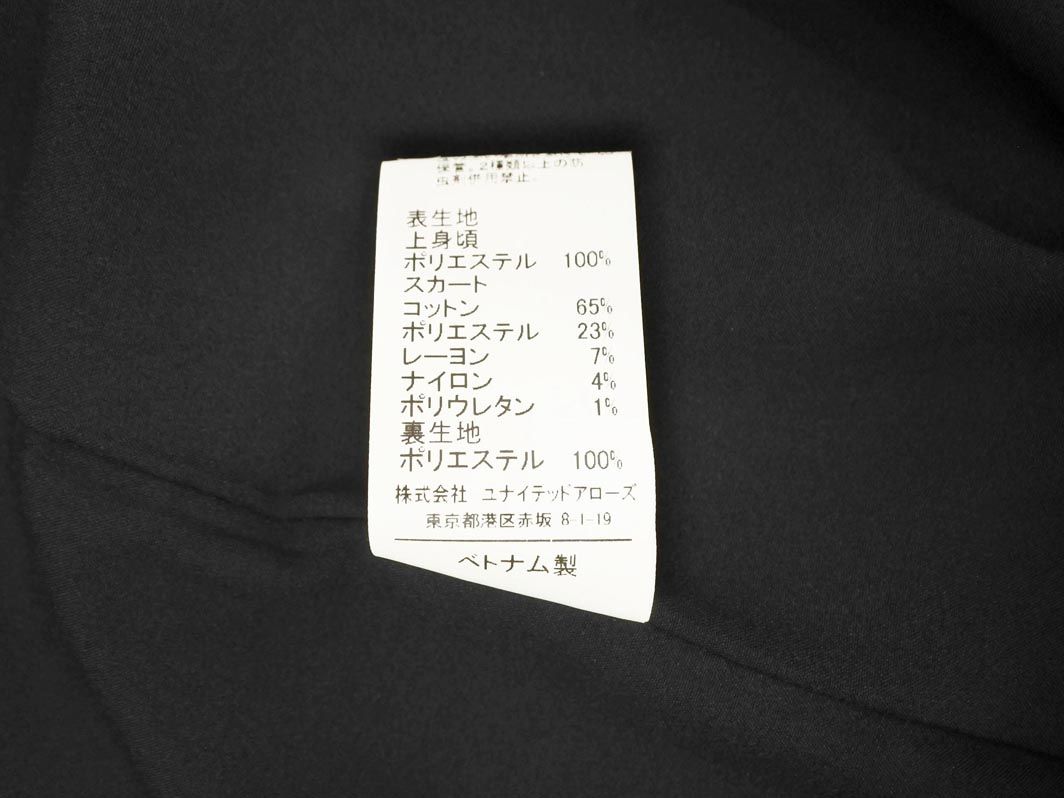 保管。2種類以上の防
虫剤併用禁止。
表生地
上身頃
ポリエステル 100%
スカート
コットン 65%
ポリエステル 23%
レーヨン 7%
ナイロン 4%
ポリウレタン 1%
裏生地
ポリエステル 100%
株式会社 ユナイテッドアローズ
東京都港区赤坂 8-1-19
ベトナム製